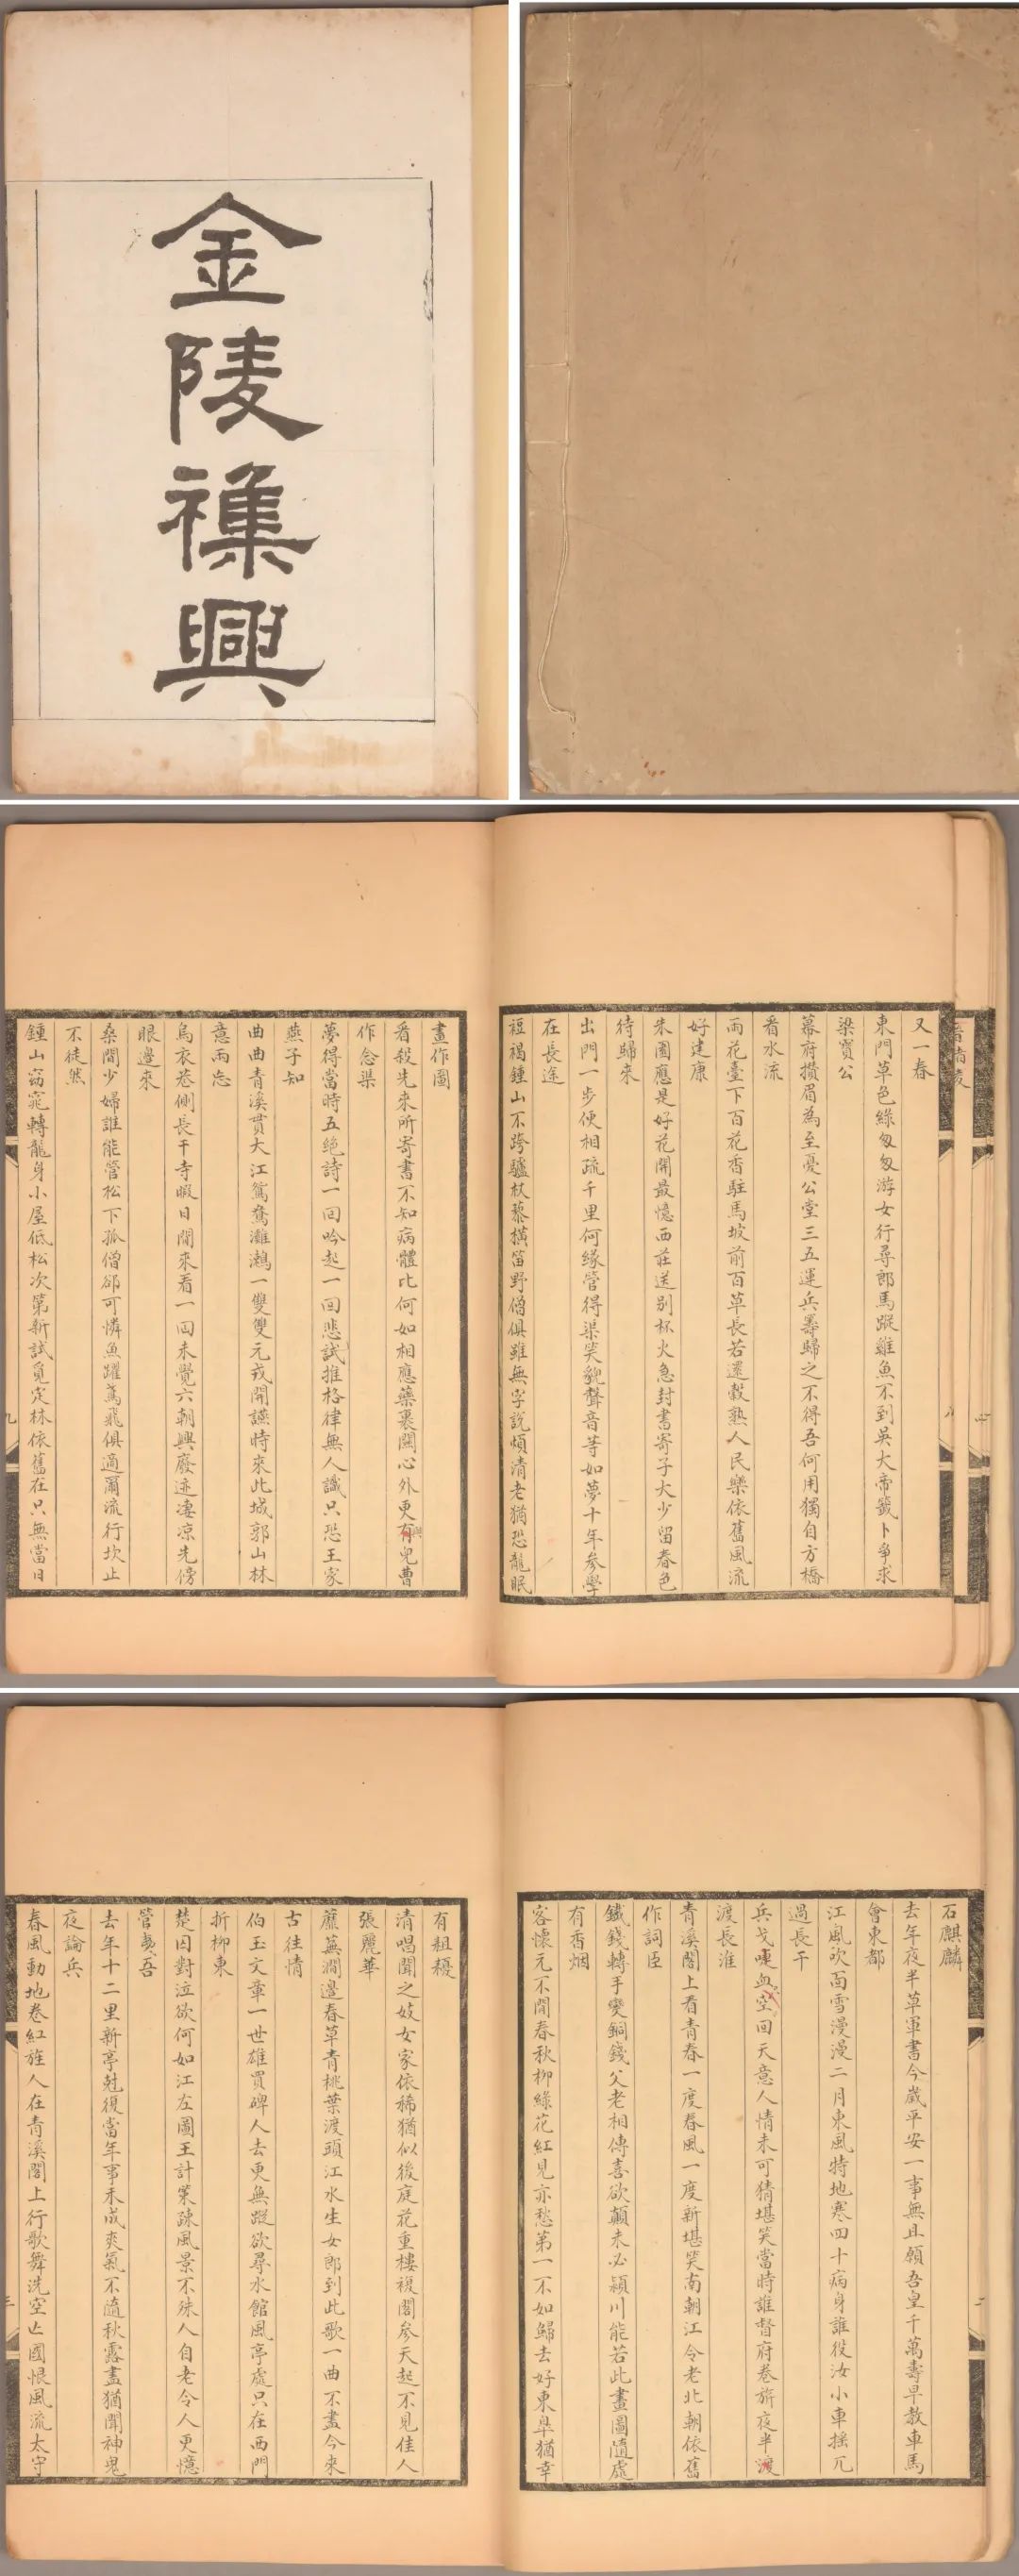 金陵襍興
又一春
東門草色綠匆匆游女行尋郎馬蹤雞魚不到吳大帝籤卜爭求
梁寶公
幕府攢眉為至憂公堂三五運兵籌歸之不得吾何用獨自方橋
看水流
雨花臺下百花香駐馬坡前百草長若還穀熟人民樂依舊風流
好建康
朱園應是好花開最憶西莊送別杯火急封書寄子大少留春色
待歸來
出門一步便相疏千里何緣管得渠笑貌聲音等如夢十年參學
在長途
短褐鍾山不跨驢杖藜橫笛野僧俱雖無字說煩清老猶恐龍眠
畫作圖
看殺先來所寄書不知病體比何如相應藥裹關心外更有兒曹
作念渠
夢得當時五絶詩一回吟起一回悲試推格律無人識只恐王家
燕子知
曲曲青溪貫大江鴛鴦灘鷘一雙雙元戎開讌時來此城郭山林
意兩忘
烏衣巷側長干寺暇日閒來看一回未覺六朝興廢迹凄凉先傍
眼邊來
桑間少婦誰能管松下孤僧郤可憐魚躍鳶飛俱適爾流行坎止
不徒然
鍾山窈窕轉龍身小屋低松次第新試覓定林依舊在只無當日
石麒麟
去年夜半草軍書今歲平安一事無且願吾皇千萬壽早教車馬
會東都
江風吹面雪漫漫二月東風特地寒四十病身誰役汝小車搖兀
過長干
兵戈喋血空回天意人情未可猜堪笑當時誰督府卷旂夜半渡
渡長淮
青溪閣上看青春一度春風一度新堪笑南朝江令老北朝依舊
作詞臣
鐵錢轉手變銅錢父老相傳喜欲顛未必潁川能若此畫圖隨處
有香烟
客懷元不閒春秋柳綠花紅見亦愁第一不如歸去好東臯猶幸
有耝耰
清唱聞之妓女家依稀猶似後庭花重樓複閣參天起不見佳人
張麗華
蘼蕪澗邊春草青桃葉渡頭江水生女郎到此歌一曲不盡今來
古往情
伯玉文章一世雄買碑人去更無蹤欲尋水館風亭處只在西門
折柳東
楚囚對泣欲何如江左圖王計策疎風景不殊人自老令人更憶
管夷吾
去年十二里新亭尅復當年事未成爽氣不隨秋露盡猶聞神鬼
夜論兵
春風動地卷紅旌人在青溪閣上行歌舞洗空亡國恨風流太守